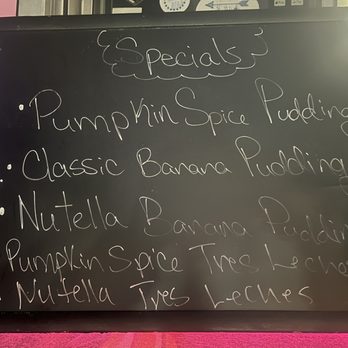 Specials
• Pumpkin Spice Pudding
• Classic Banana Pudding
• Nutella Banana Puddin
Pumpkin Spice Tres Leches
Nutella Tres Leches